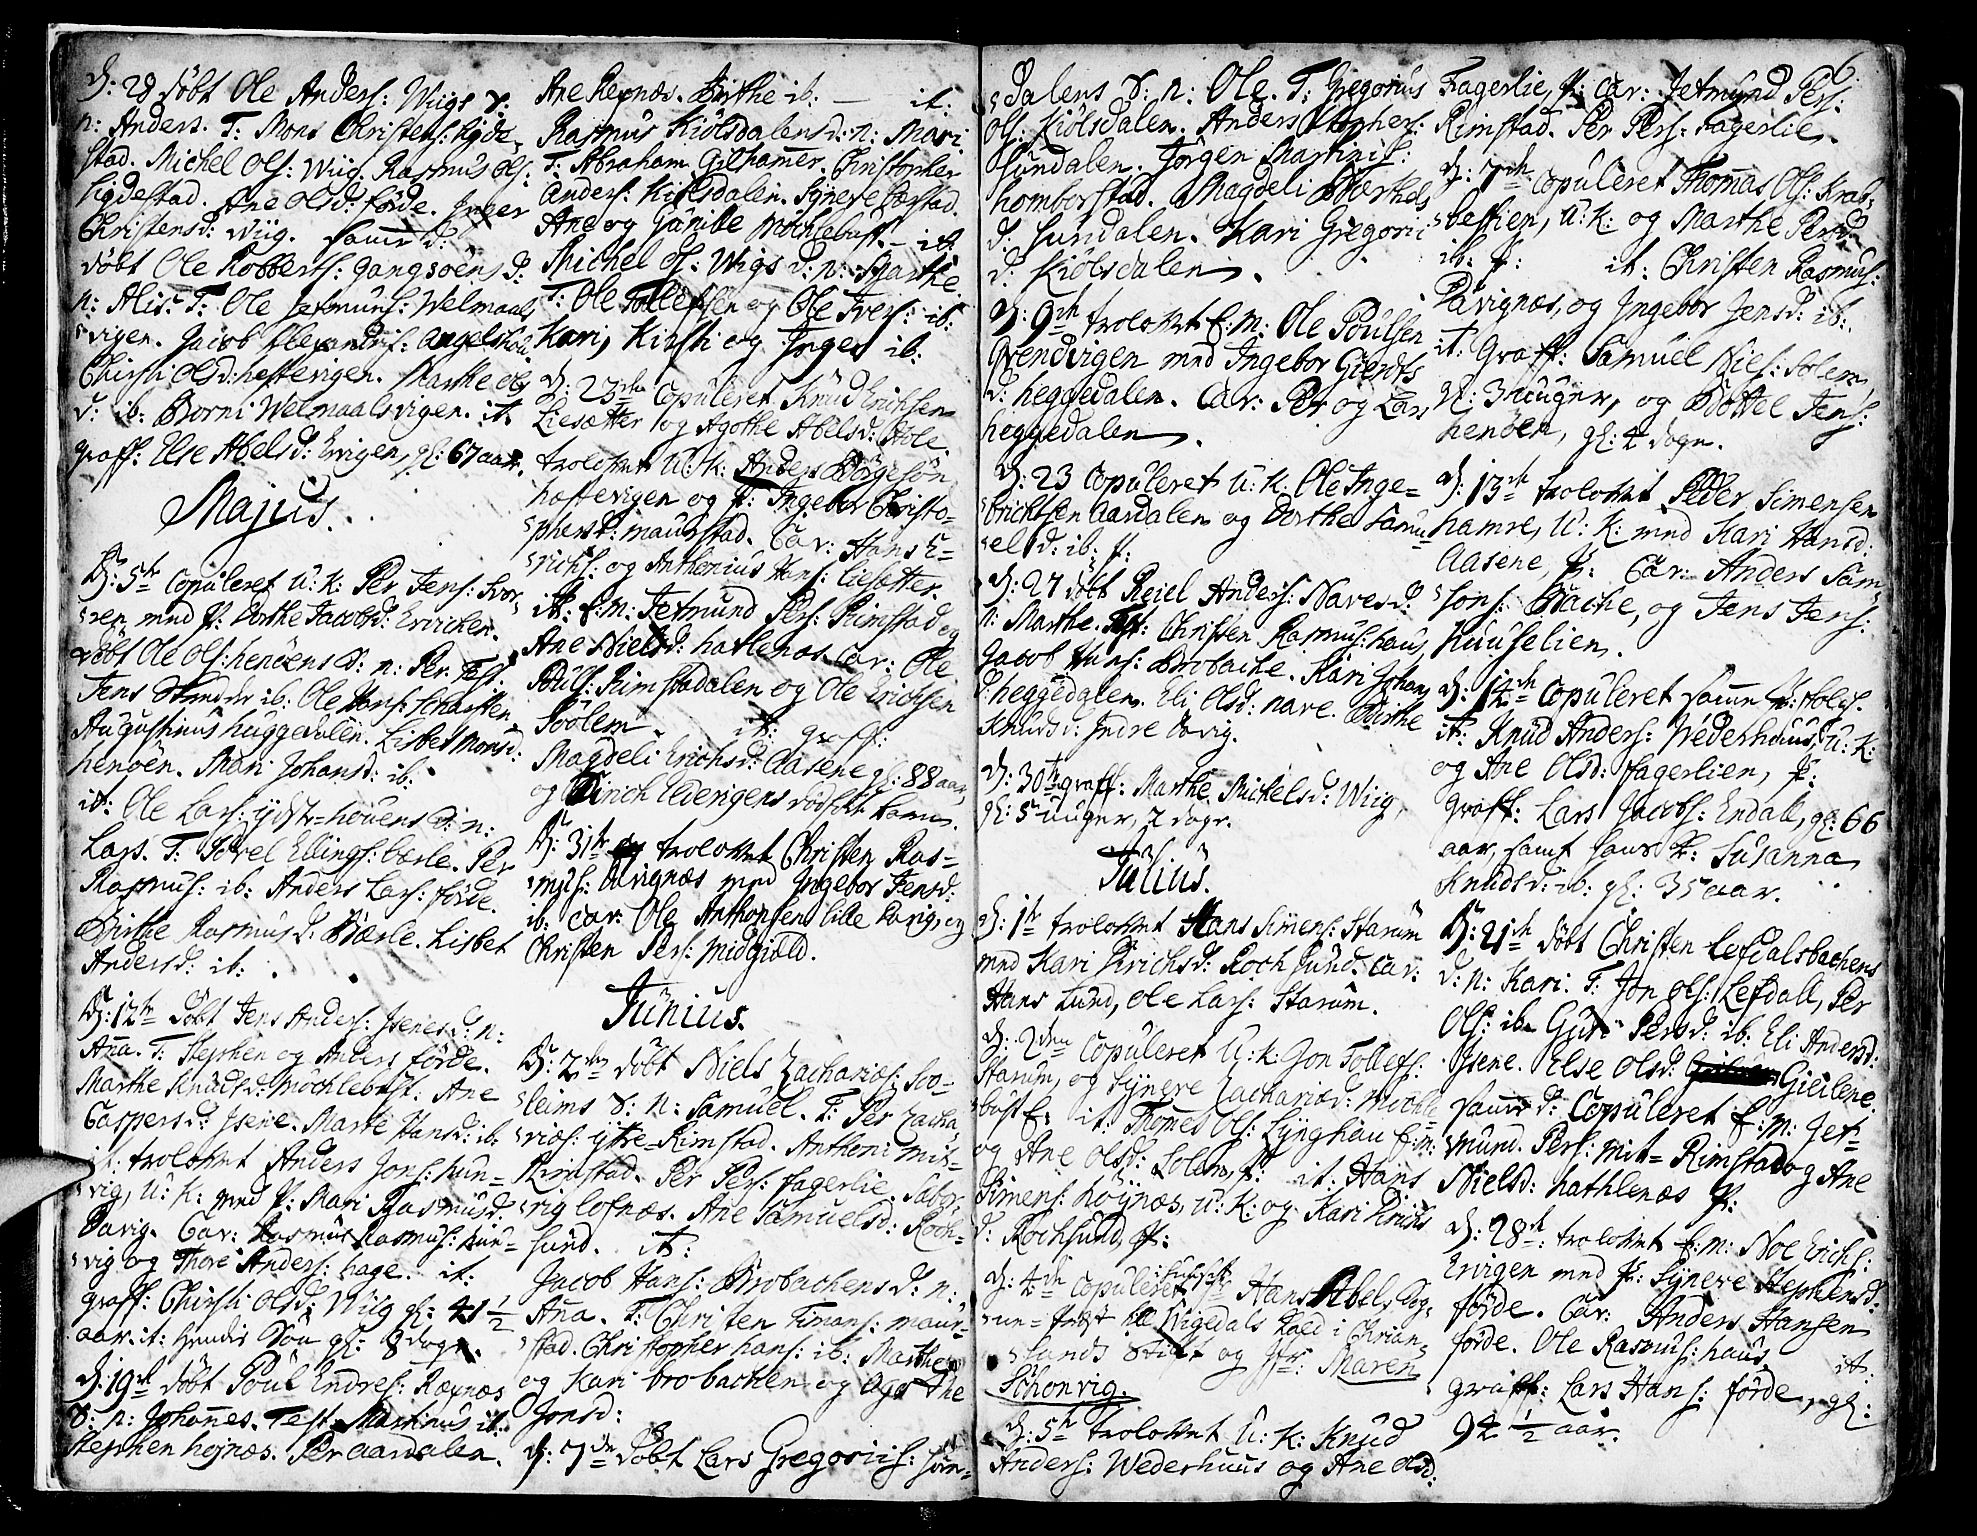 d: 28 döbt Ole Anders: Wiigs S:
n: Anders. T: Mons Christens: hyde-
stad. Michel Ols: Wiig. Rasmus Ols:
hydestad. Ane Olsd: förde. Inger
Christensd: Wiig. Samme d:
döbt Ole Robberts: Gangsöens D:
n: Alis. T: Ole Jetmuns: Welmaals
vigen. Jacob
Chirsti Olsd: heffrevigen. Marthe Ols
d: ib: Borni Welmaalsvigen. it:
graff: Else Abelsd: Ervigen, gl: 67 aar.
Majus.
D: 5te Copuleret U: K: Per Jens:
med P: Dorthe Jacobsd: Ervichen.
döbt Ole Ols: henöens S: n: Per. Test:
Jens ib: Ole Hans:
Augustinus huggedalen. Lisbet Monsd:
henöen. Mari Johansd: ib:
it: Ole Lars: ydst=houens D: n:
Lars. T: Elling: Bærle. Per
Rasmus: ib: Anders Lars: förde.
Birthe Rasmusd: Bærle. Lisbet
Andersd: ib:
D: 12te Döbt Jens Anders: Isenes d: n:
Aña. T: Stephen og Anders förde.
Marthe Knudsd: Möchlebust. Ane
Caspersd: Isene. Marte Hansd: ib:
it: trolovet Anders Jons: hun-
vig, U: K: med P: Mari Rasmusd:
Davig. Cav: Rasmus Rasmus: hun-
vig og Thore Anders: hage. it:
graff: Chirsti Olsd: Wiig gl: 41 1/2
aar. it: hendis Sön gl: 8 dage.
D: 19de döbt Poul Endres: Røynæs
S: n: Johannes. Test: Martinus ib:
Stephen hojnæs. Per aardalen.
Ane Reynæs. Birthe ib: — it:
Rasmus Kiölsdalens d: n: Mari
T: Abraham Gilhamer. Christopher
Anders: Kiölsdalen. Synneve
Ane og Gunilde Möchlebust. — it:
Michel Ols: Wigs d: n: Marthe
T: Ole Tollefsen og Ole Ivers: ib:
Kari, Kirsti og Inger ib:
D: 23de Copuleret Knud Erichsen
Liesætter og Agothe Abelsd: Hole.
trolovet U: K: Anders Börgesön
hæffrevigen og P: Ingebor Christo-
phersd: maurstad. Cav: Hans E-
richs: og Anthonius Hans: Liesætter.
it: E: M: Jetmund Pers: Rimstad og
Ane Nielsd: hatlenæs. Cav: Ole
Pouls: Rimstadalen og Ole Erichsen
Soolem. it: graff:
Magdeli Erichsd: Aasene gl: 88 aar,
og Erich Elderigens dödföt barn.
D: 31te trolovet Christen Ras-
mus: Davignæs med Ingebor Jensd:
ib: Cav: Ole Anthonsen lille Davig, og
Christen Pers: Midgiold.
Junius.
D: 2den döbt Niels Zacharias: Soo-
leims S: n: Samuel. T: Per Zacha-
rias: ytre=Rimstad. Anthoni mit=
Rimstad. Per Pers: Fagerlie.
vig lofnæs. Ane Samuelsd: Roch-
sund. it:
Jacob Hans: Brobachens d: n:
Aña. T: Christen Timans: maur-
stad. Christopher hans: ib: Marthe
og Kari brobachen og Agathe
Jonsd:
d: 7de döbt Lars Gregoriis: Sun-
dalens S: n: Ole. T: Gregorius
Ols: Kiölsdalen. Anders Stophers:
Sundalen. Jörgen Martinis:
homborstad. Magdeli Barthels
d: Sundalen. Kari Gregorii
d: Kiölsdalen.
D: 9de trolovet E: M: Ole Poulsen
Grendvigen med Ingebor Gierts
d: heggedalen. Cav: Per og Lars
heggedalen.
D: 23 Copuleret U: K: Ole Inge=
brichtsen Aardalen og Dorthe Samu-
elsd: ib: P:
D: 27 döbt Reiel Anders: Naves d:
n: Marthe. Test: Christen Rasmus: haus,
Jacob Hans: Brobache. Kari Johans
d: heggedalen. Eli Olsd: nave. Birthe
Knudsd: Indre Davig.
D: 30te graff: Marthe Michelsd: Wiig,
gl: 5 uuger, 2 dage.
Julius.
D: 1te trolovet Hans Simens: Starum
med Kari Erichsd: Rochsund. Cav:
Hans Lund, Ole Lars: Starum.
D: 2den Copuleret U: K: Jon Tollefs:
Starum, og Synneve Zachariæd: Möchle-
bust E: it: Thomes Ols: Lynghau E: M:
og Ane Olsd: Solem, P: it: Hans
Simens: höynæs, U: K: og Kari Erichs
d: Rochsund, P:
D: 4de Copuleret Hans Abel, Sog-
ne=Præst til Qvigedals kald i Chrian-
sands Stift og Jfr: Maren
Schonvig.
D: 5te trolovet U: K: Knud
Anders: Wederhuus og Ane Olsd:
6.
Fagerlie, P: Cav: Jetmund Pers:
Rimstad. Per Pers: Fagerlie.
D: 7de Copuleret Thomas Ols: Krab-
bestien, U: K: og Marthe Persd:
ib: P: it: Christen Rasmus:
Davignæs, og Ingebor Jensd: ib:
it: Graff: Samuel Niels: Solem,
gl: 3 uuger, og Bottel Jens:
henöen, gl: 4 dage.
D: 13de trolovet Peder Simensen
hamre, U: K: med Kari Hansd:
Aasene, P: Cav: Anders Sam-
sons: Bache, og Jens Jens:
Huuselien.
D: 14de Copuleret samme
it: Knud Anders: Wederhuus, U: K:
og Ane Olsd: Fagerlien, P:
graff: Lars Jacobs: Endall, gl: 66
aar, samt hans K: Susanna
Knudsd: ib: gl: 35 aar.
D: 21de döbt Christen Lefdalsbachens
d: n: Kari. T: Jon Ols: Lefdall, Per
Ols: ib: Guri Persd: ib: Eli Andersd:
Isene. Else Olsd: Gieilene.
samme d: Copuleret E: M: Jet-
mund Pers: mit=Rimstad og Ane
Nielsd: hathlenæs P:
D: 28de: trolovet E: M: Noe Erichs:
Ervigen med P: Synneve Stephensd:
förde. Cav: Anders Hansen
förde. Ole Rasmus: haus it:
graff: Lars Hans: förde, gl:
94 1/2 aar.